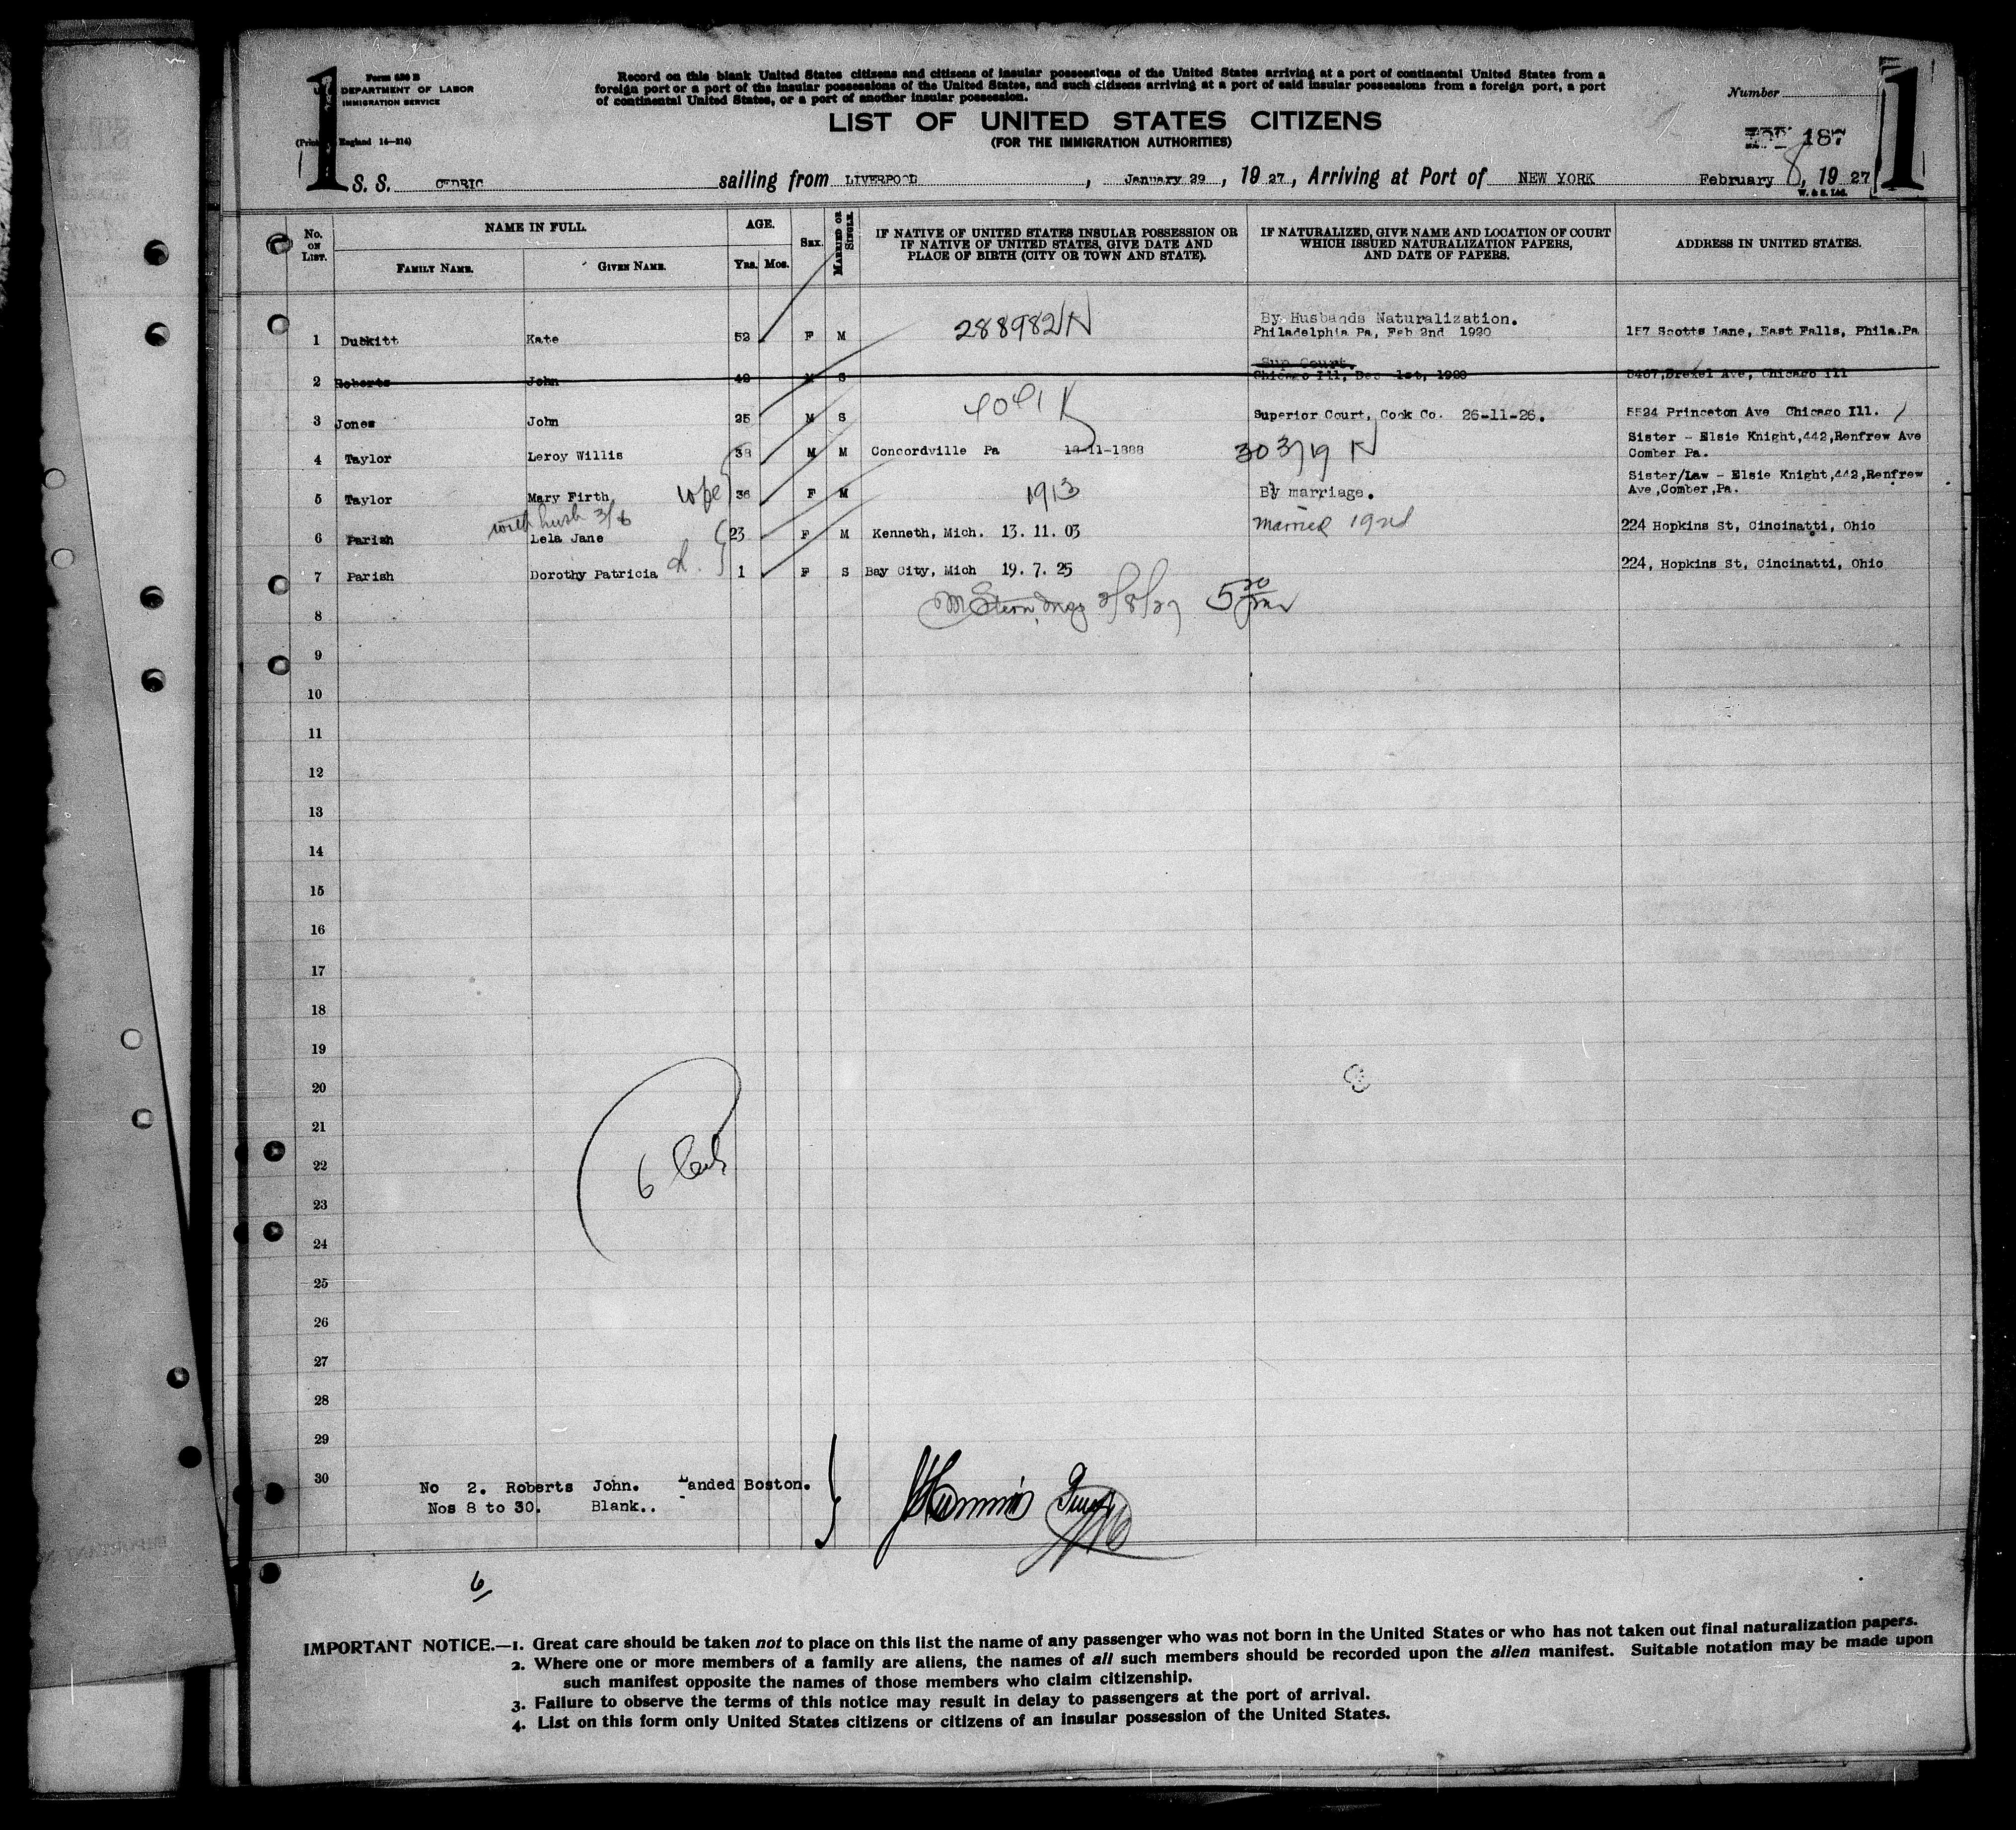 Form 630 B
U. S. DEPARTMENT OF LABOR
IMMIGRATION SERVICE
England 14—214)
1
Record on this blank United States citizens and citizens of insular possessions of the United States arriving at a port of continental United States from a
foreign port or a port of the insular possessions of the United States, and such citizens arriving at a port of said insular possessions from a foreign port, a port
of continental United States, or a port of another insular possession.
Number
1
LIST OF UNITED STATES CITIZENS
(FOR THE IMMIGRATION AUTHORITIES)
187
S. S. CEDRIC sailing from LIVERPOOL, January 29, 1927, Arriving at Port of NEW YORK February 8, 1927
W. & S. Ltd.
No. ON LIST.
NAME IN FULL.
FAMILY NAME.
GIVEN NAME.
AGE.
YRS. MOS.
SEX.
MARRIED OR SINGLE.
IF NATIVE OF UNITED STATES INSULAR POSSESSION OR
IF NATIVE OF UNITED STATES, GIVE DATE AND
PLACE OF BIRTH (CITY OR TOWN AND STATE).
IF NATURALIZED, GIVE NAME AND LOCATION OF COURT
WHICH ISSUED NATURALIZATION PAPERS,
AND DATE OF PAPERS.
ADDRESS IN UNITED STATES.
By Husbands Naturalization.
1 Duckitt Kate 52 F M 288982 N Philadelphia Pa, Feb 2nd 1920 157 Scotts Lane, East Falls, Phila.Pa
Sup Court.
2 Roberts John M S Chicago Ill, Dec 1st, Drexel Ave, Chicago Ill
3 Jones John 25 M S Superior Court, Cook Co. 26-11-26. 5524 Princeton Ave Chicago Ill.
Sister - Elsie Knight,442,Renfrew Ave
4 Taylor Leroy Willis 38 M M Concordville Pa -11-1888 30319 N Comber Pa.
Sister/Law - Elsie Knight,442,Renfrew
5 Taylor Mary Firth wife 36 F M 1913 By marriage. Ave,Comber,Pa.
with husb 3/6
6 Parish Lela Jane 23 F M Kenneth, Mich. 13. 11. 03 married 1922 224 Hopkins St, Cincinatti, Ohio
7 Parish Dorothy Patricia d. 1 F S Bay City, Mich 19. 7. 25 224, Hopkins St, Cincinatti, Ohio
2/8/27 5 30
8
9
10
11
12
13
14
15
16
17
18
19
20
21
22
6
23
24
25
26
27
28
29
30
No 2. Roberts John. Landed Boston.
Nos 8 to 30. Blank..
6
IMPORTANT NOTICE.—1. Great care should be taken not to place on this list the name of any passenger who was not born in the United States or who has not taken out final naturalization papers.
2. Where one or more members of a family are aliens, the names of all such members should be recorded upon the alien manifest. Suitable notation may be made upon
such manifest opposite the names of those members who claim citizenship.
3. Failure to observe the terms of this notice may result in delay to passengers at the port of arrival.
4. List on this form only United States citizens or citizens of an insular possession of the United States.